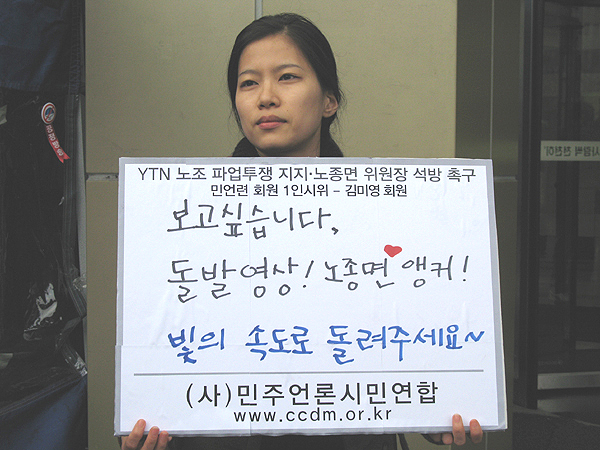 YTN 노조 파업투쟁 지지·노종면 위원장 석방 촉구
민언련 회원 1인시위 - 김미영 회원
보고싶습니다,
돌발영상! 노종면 앵커!
빛의 속도로 돌려주세요~
(사)민주언론시민연합
www.ccdm.or.kr